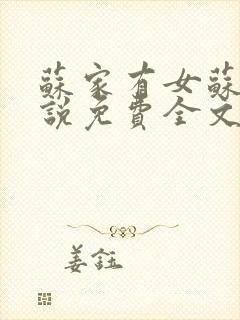 蘇家有女蘇
說免費全文
姜鈺